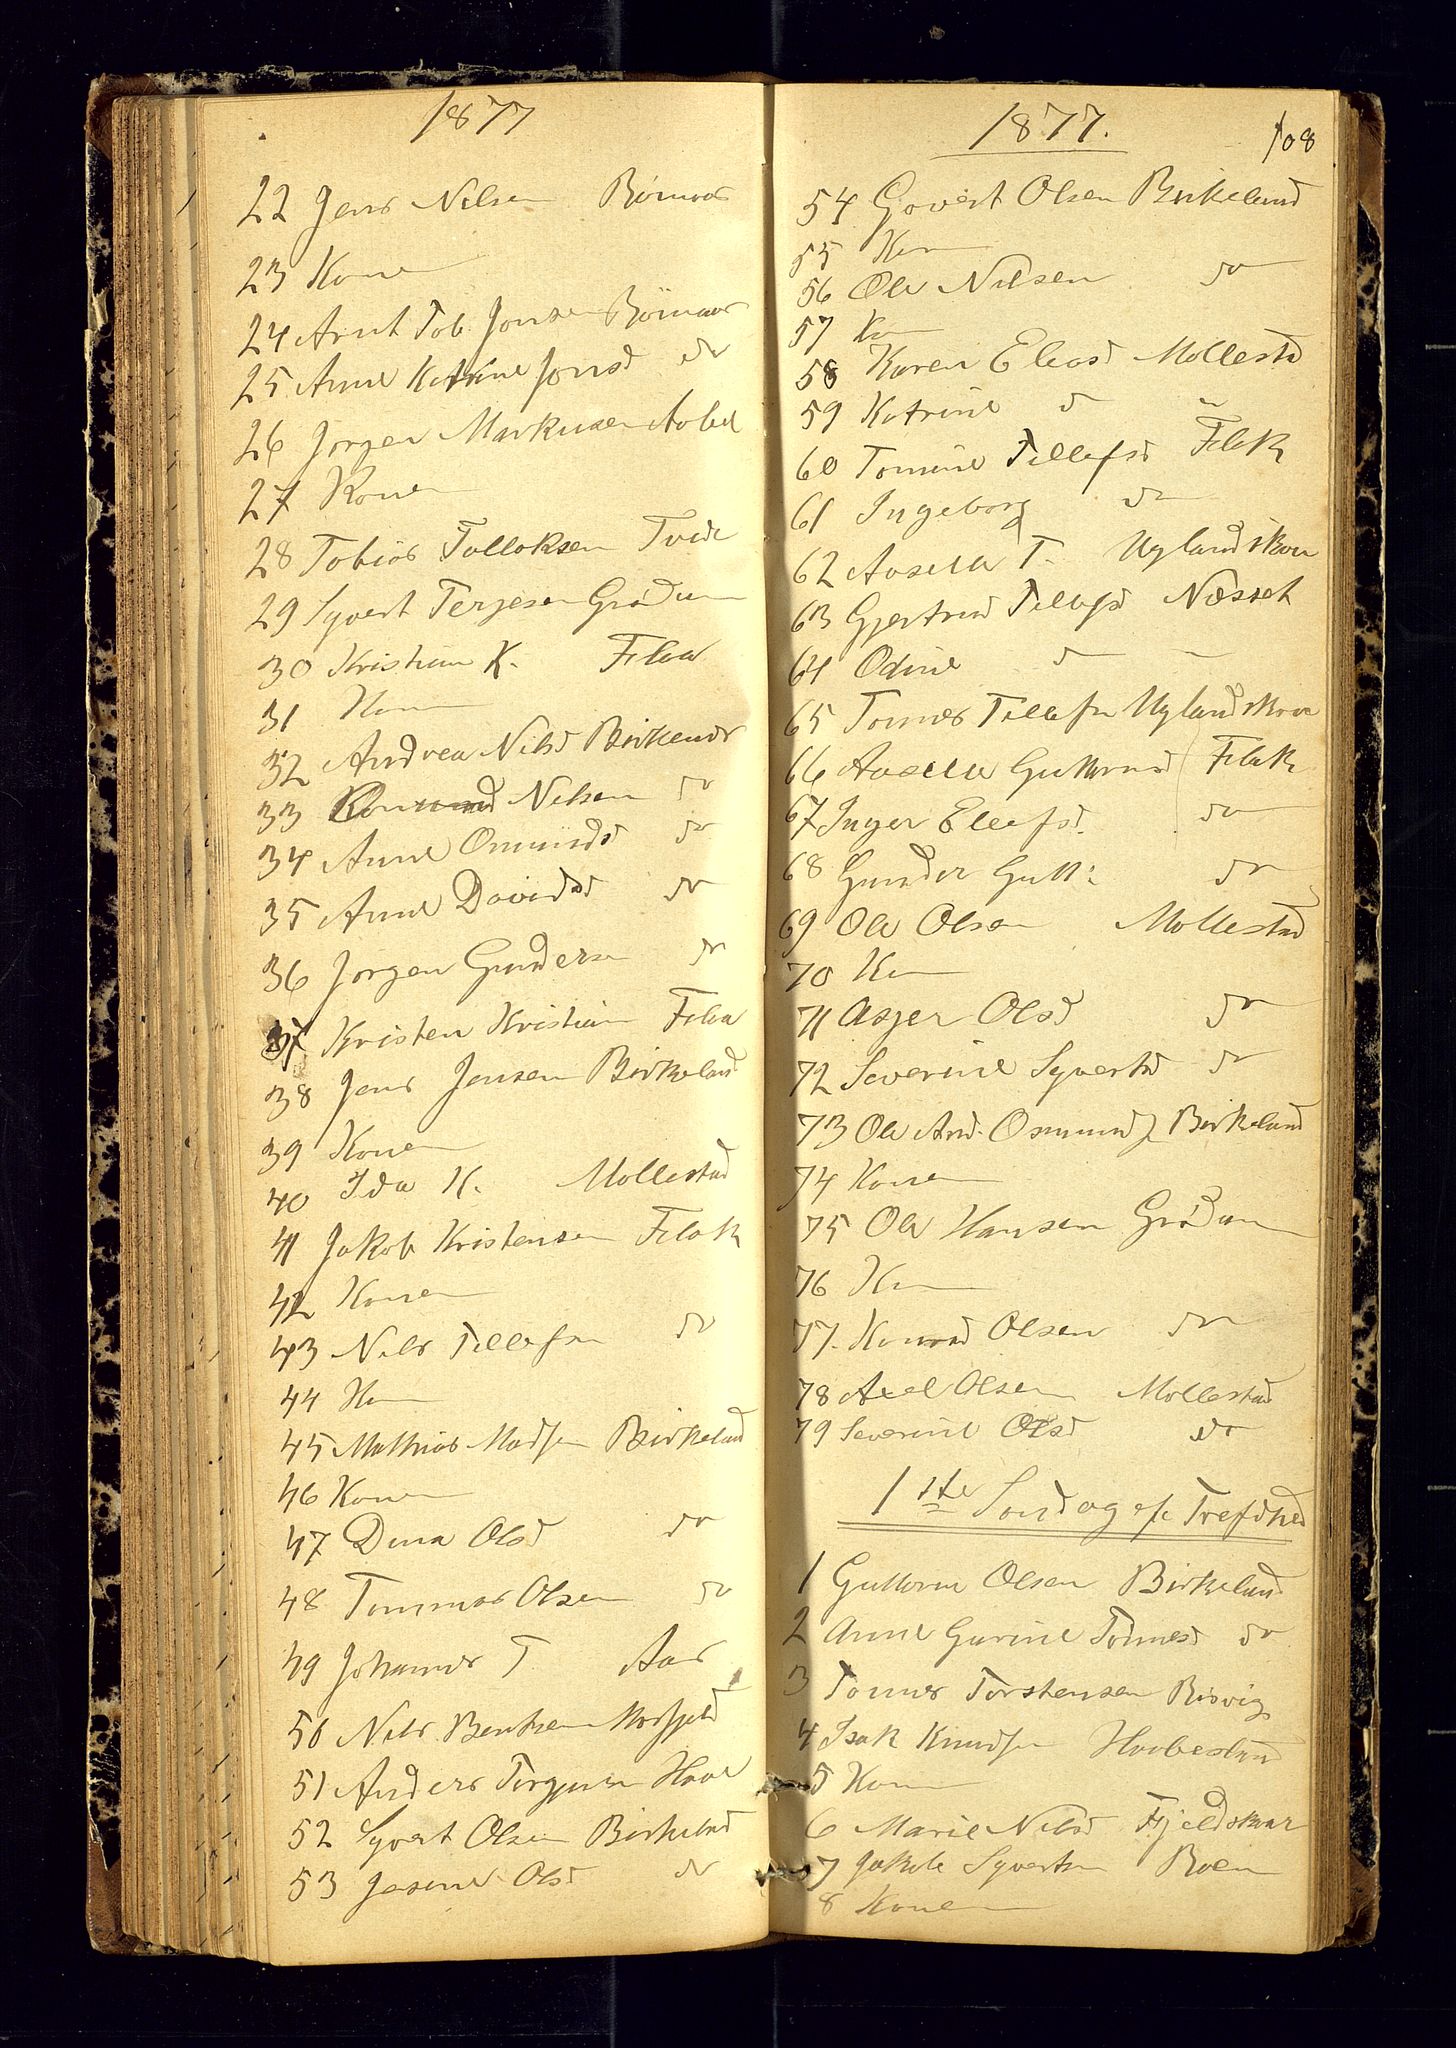 1877
22 Jens Nilsen
23 Konen
24 Arnt Tob. Jonsen
25 Anne Katrine Jonsd do
26 Jørgen Markusen
27 Konen
28 Tobias Tallaksen Tvede
29 Syvert Terjesen Grødum
30 Kristian K. Flaa
31 Kon
32 Andrea Nilsd
33 Nilsen do
34 Anne Omunds do
35 Anne Davidsd do
36 Jørgen Gundersen do
37 Kristen Kristian Flaa
38 Jens Jensen Birkeland
39 Konen
40 Ida K. Mollestad
41 Jakob Kristensen Flak
42 Konen
43 Nils Tellefsen do
44 Kon
45 Mathias Madsen Birkeland
46 Konen
47 Dina Olsd do
48 Tommas Olsen do
49 Johannes T. Aas
50 Nils Bentsen
51 Anders Torjusen
52 Syvert Olsen Birkeland
53 Jasine Olsd do
1877. 108
54 Govert Olsen Birkeland
55 Kon
56 Ole Nilsen do
57 Kon
58 Karen Eleasd Mollestd
59 Katrine d
60 Tomine Tellefsd Flak
61 Ingeborg do
62 Aasella T.
63 Gjertrud Tellefsd Næsset
64 Odine d -
65 Tønnes Tellefsn
66 Aasella Guttormsd Flak
67 Inger Ellefsd. do
68 Gunder Gutt: do
69 Ole Olsen Mollestad
70 Kon
71 Asjer Olsd do
72 Severine Syvertsd do
73 Ole And. Osmunds Birkeland
74 Konen
75 Ole Hansen Grødum
76 Kon
77. Konrad Olsen do
78 Axel Olsen Mollestad
79 Severine Olsd do
1ste Søndag ef Trefdhed
1 Guttorm Olsen Birkeland
2 Anne Gurine Tønnesd do
3 Tønnes Torstensen Risvig
4 Isak Knudsen Haabestad
5 Konen
6 Marie Nilsd Fjeldskaar
7 Jakob Syvertsen Roen
8 Konen